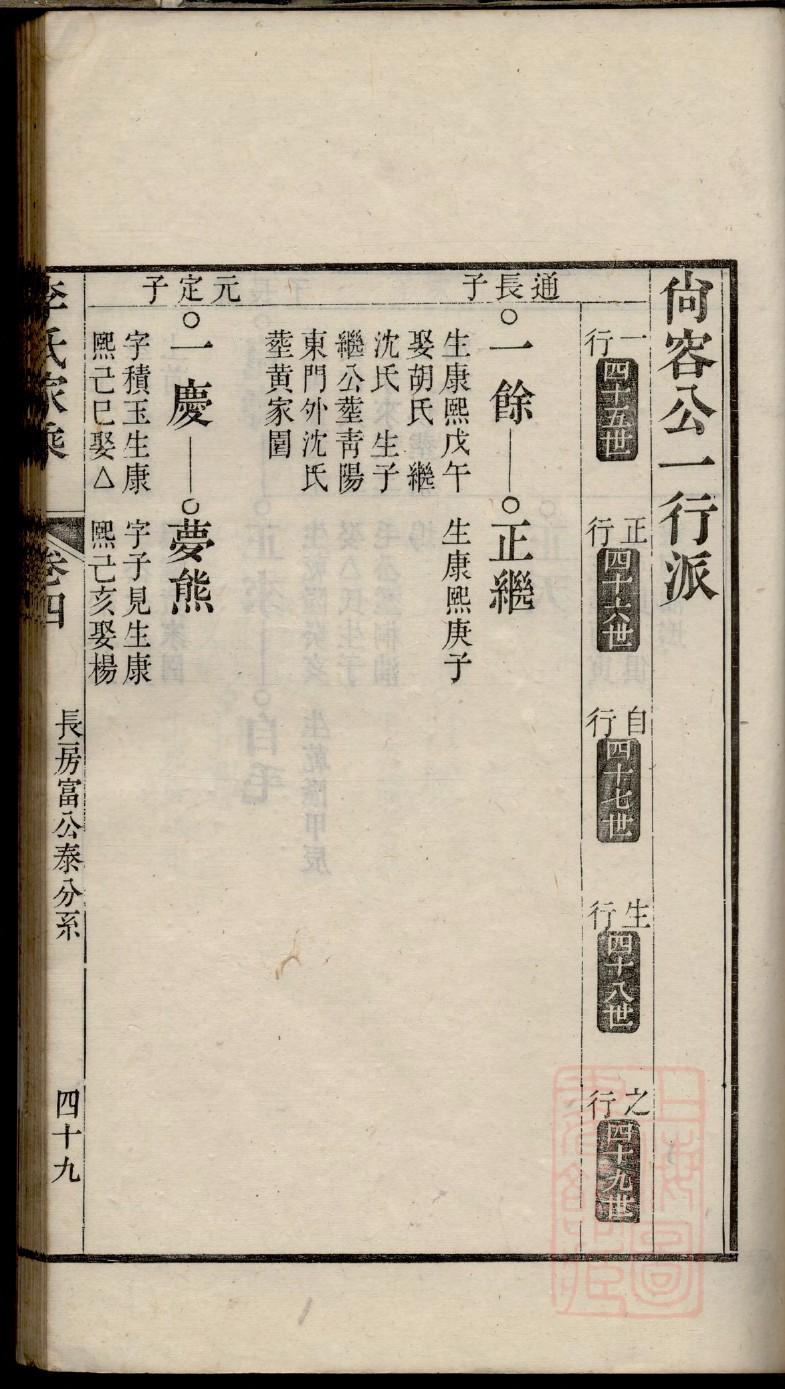 尙容公一行派
一行 四十五世
正行 四十六世
自行 四十七世
生行 四十八世
之行 四十九世
通長子
一餘
生康熙戊午
娶胡氏 繼
沈氏 生子
繼公塟靑陽
東門外沈氏
塟黄家圍
正繼
生康熙庚子
元定子
一慶
字積玉生康
熙己巳娶△
夢熊
字子見生康
熙己亥娶楊
李氏家乘
卷四
長房富公泰分系
四十九